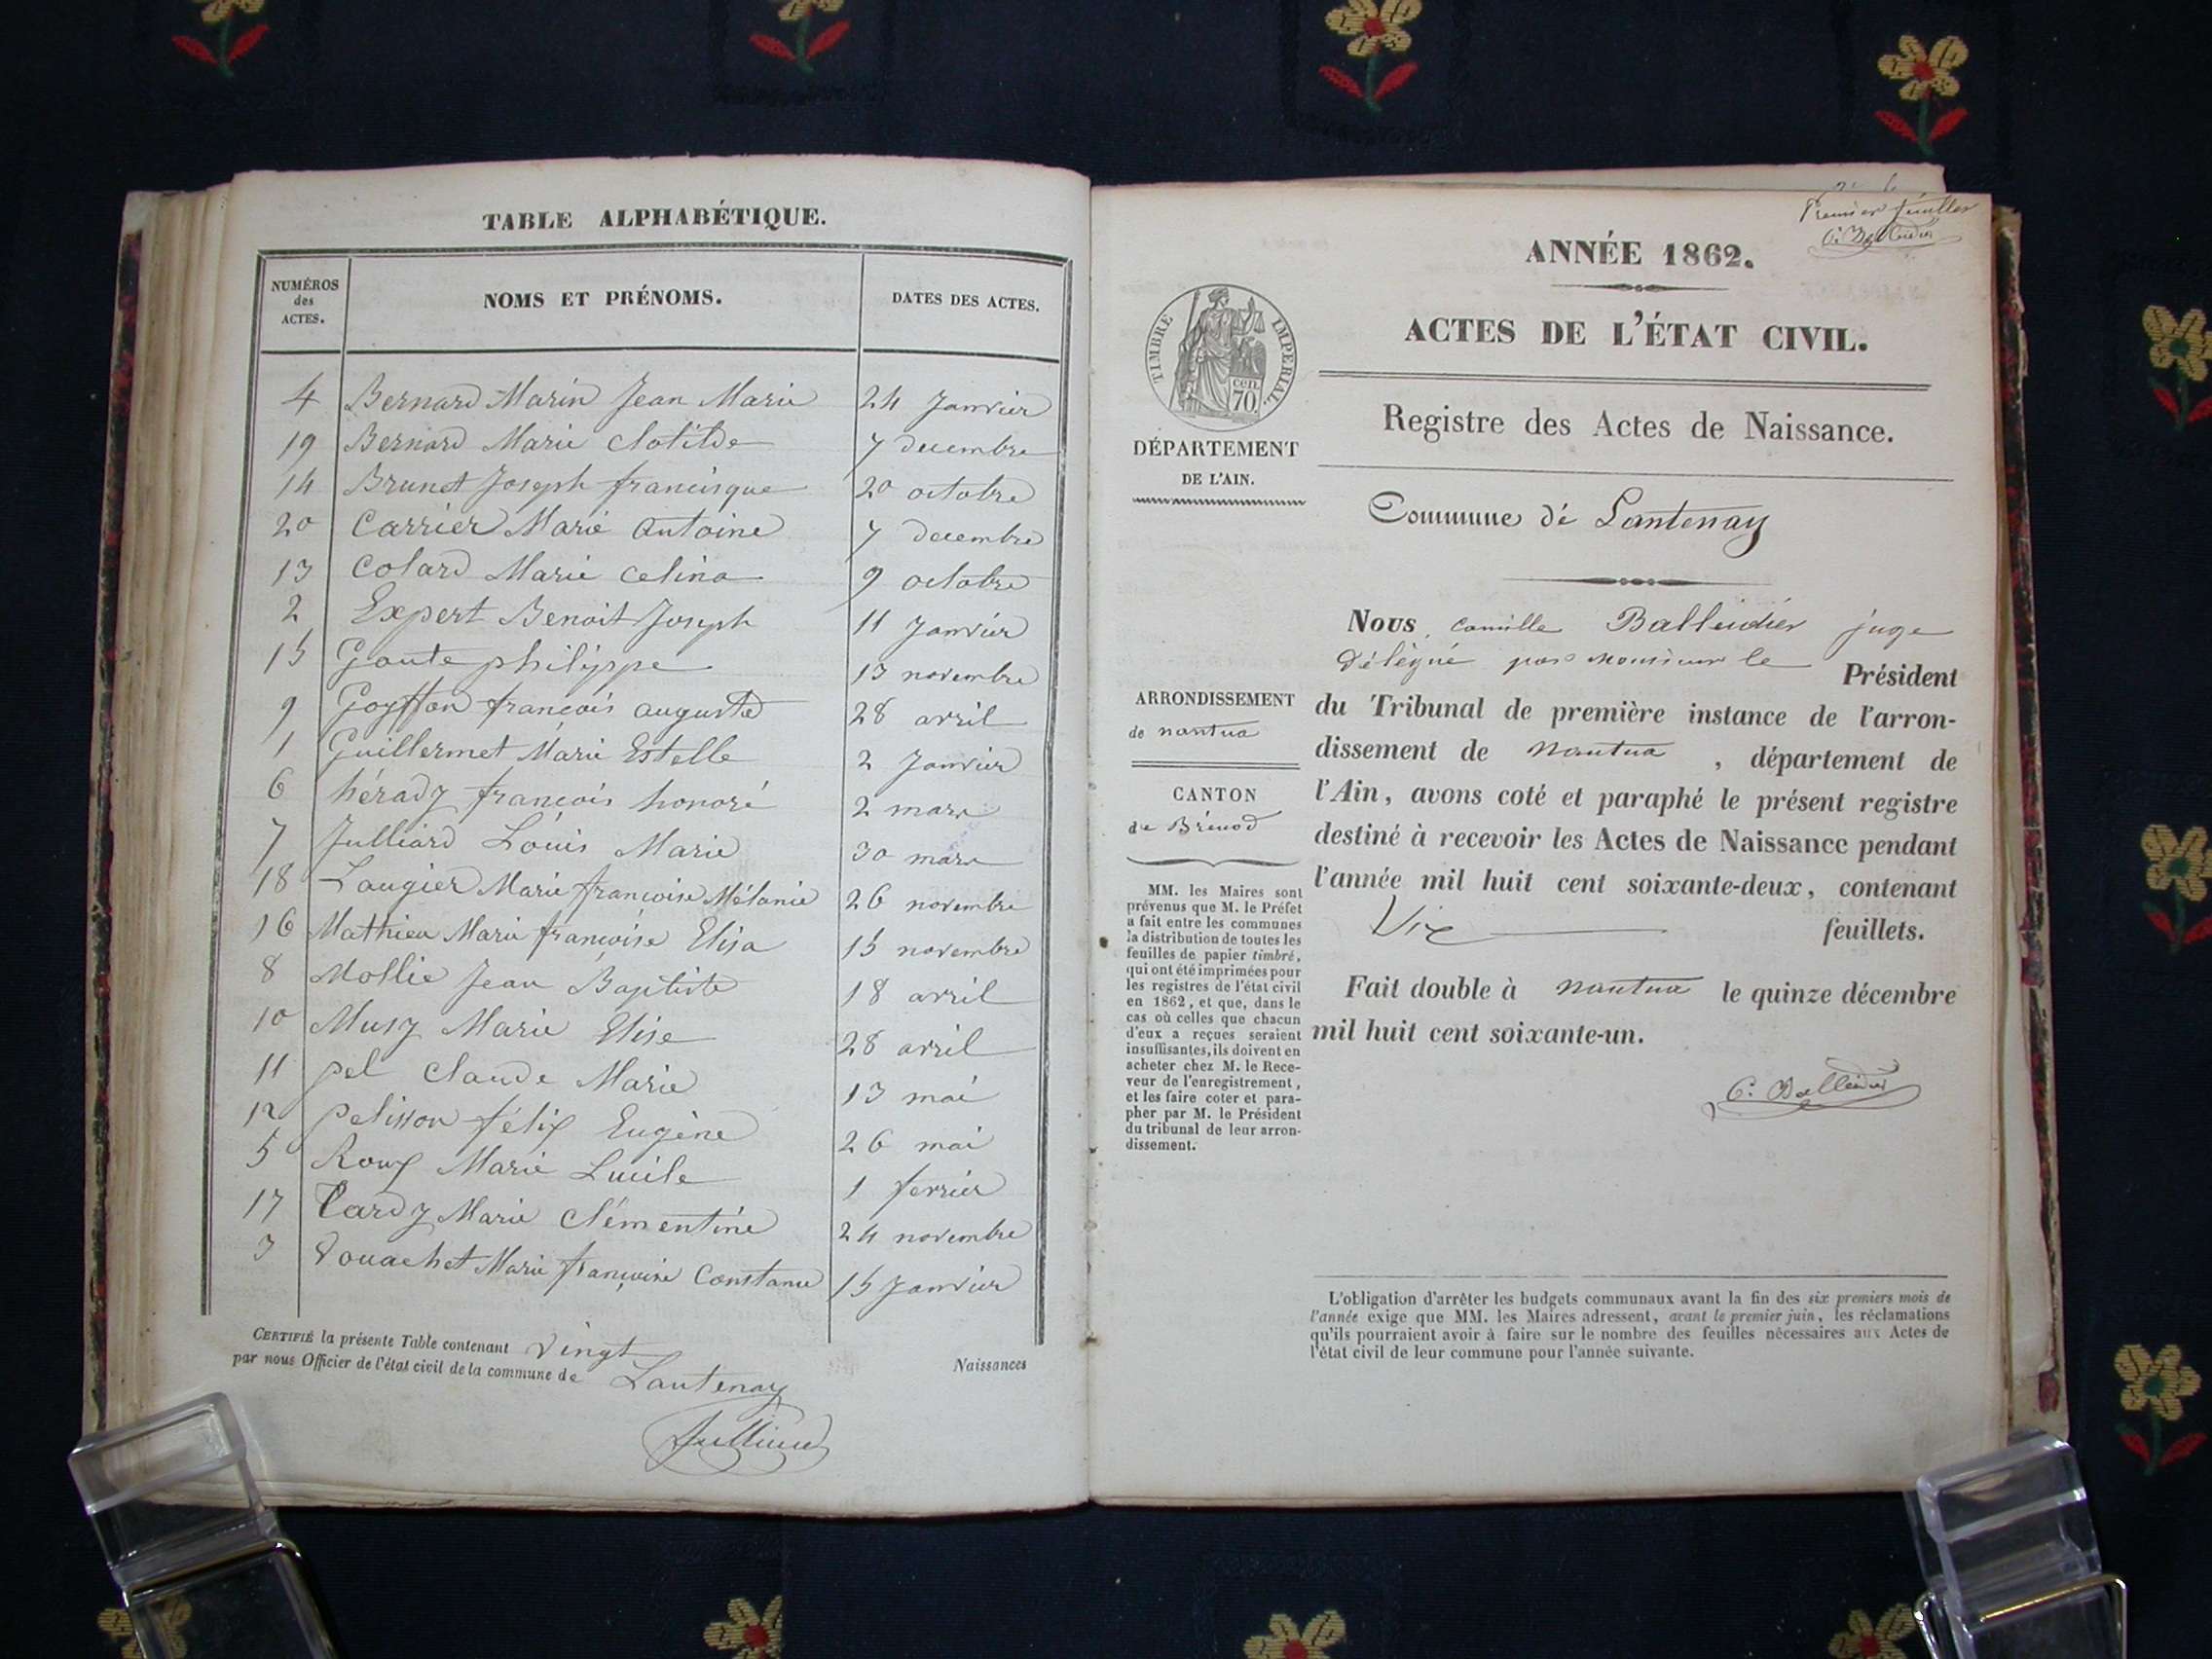 TABLE ALPHABÉTIQUE.
NUMÉROS des ACTES. NOMS ET PRÉNOMS. DATES DES ACTES.
4 Bernard Marin Jean Marie 24 Janvier
19 Bernard Marie Clotilde 7 decembre
14 Brunet Joseph francisque 20 octobre
20 Carrier Marie Antoine 7 decembre
13 Colard Marie Celina 9 octobre
2 Expert Benoit Joseph 11 Janvier
15 Goute philippe 13 novembre
9 Goyffon françois auguste 28 avril
1 Guillermet Marie Estelle 2 Janvier
6 hérady françois honoré 2 mars
7 Julliard Louis Marie 30 mars
18 Laugier Marie françoise Mélanie 26 novembre
16 Mathieu Marie françoise Elisa 15 novembre
8 Mollie Jean Baptiste 18 avril
10 Musy Marie Elise 28 avril
11 pel Claude Marie 13 mai
12 pelisson félix Eugène 26 mai
5 Roux Marie Lucile 1 fevrier
17 Tardy Marie Clémentine 24 novembre
3 Vouachet Marie françoise Constance 15 Janvier
CERTIFIÉ la présente Table contenant Vingt Naissances
par nous Officier de l'état civil de la commune de Lantenay
Premier feuillet
C. Balleidier
ANNÉE 1862.
ACTES DE L'ÉTAT CIVIL.
TIMBRE IMPERIAL.
cen.
70.
DÉPARTEMENT
DE L'AIN.
Registre des Actes de Naissance.
Commune de Lantenay
Nous, Camille Balleidier juge
délégué par Monsieur le Président
du Tribunal de première instance de l'arron-
dissement de Nantua, département de
l'Ain, avons coté et paraphé le présent registre
destiné à recevoir les Actes de Naissance pendant
l'année mil huit cent soixante-deux, contenant
feuillets.
Fait double à Nantua le quinze décembre
mil huit cent soixante-un.
C. Balleidier
ARRONDISSEMENT
de nantua
CANTON
de Brénod
MM. les Maires sont
prévenus que M. le Préfet
a fait entre les communes
la distribution de toutes les
feuilles de papier timbré,
qui ont été imprimées pour
les registres de l'état civil
en 1862, et que, dans le
cas où celles que chacun
d'eux a reçues seraient
insuffisantes, ils doivent en
acheter chez M. le Rece-
veur de l'enregistrement,
et les faire coter et para-
pher par M. le Président
du tribunal de leur arron-
dissement.
L'obligation d'arrêter les budgets communaux avant la fin des six premiers mois de
l'année exige que MM. les Maires adressent, avant le premier juin, les réclamations
qu'ils pourraient avoir à faire sur le nombre des feuilles nécessaires aux Actes de
l'état civil de leur commune pour l'année suivante.